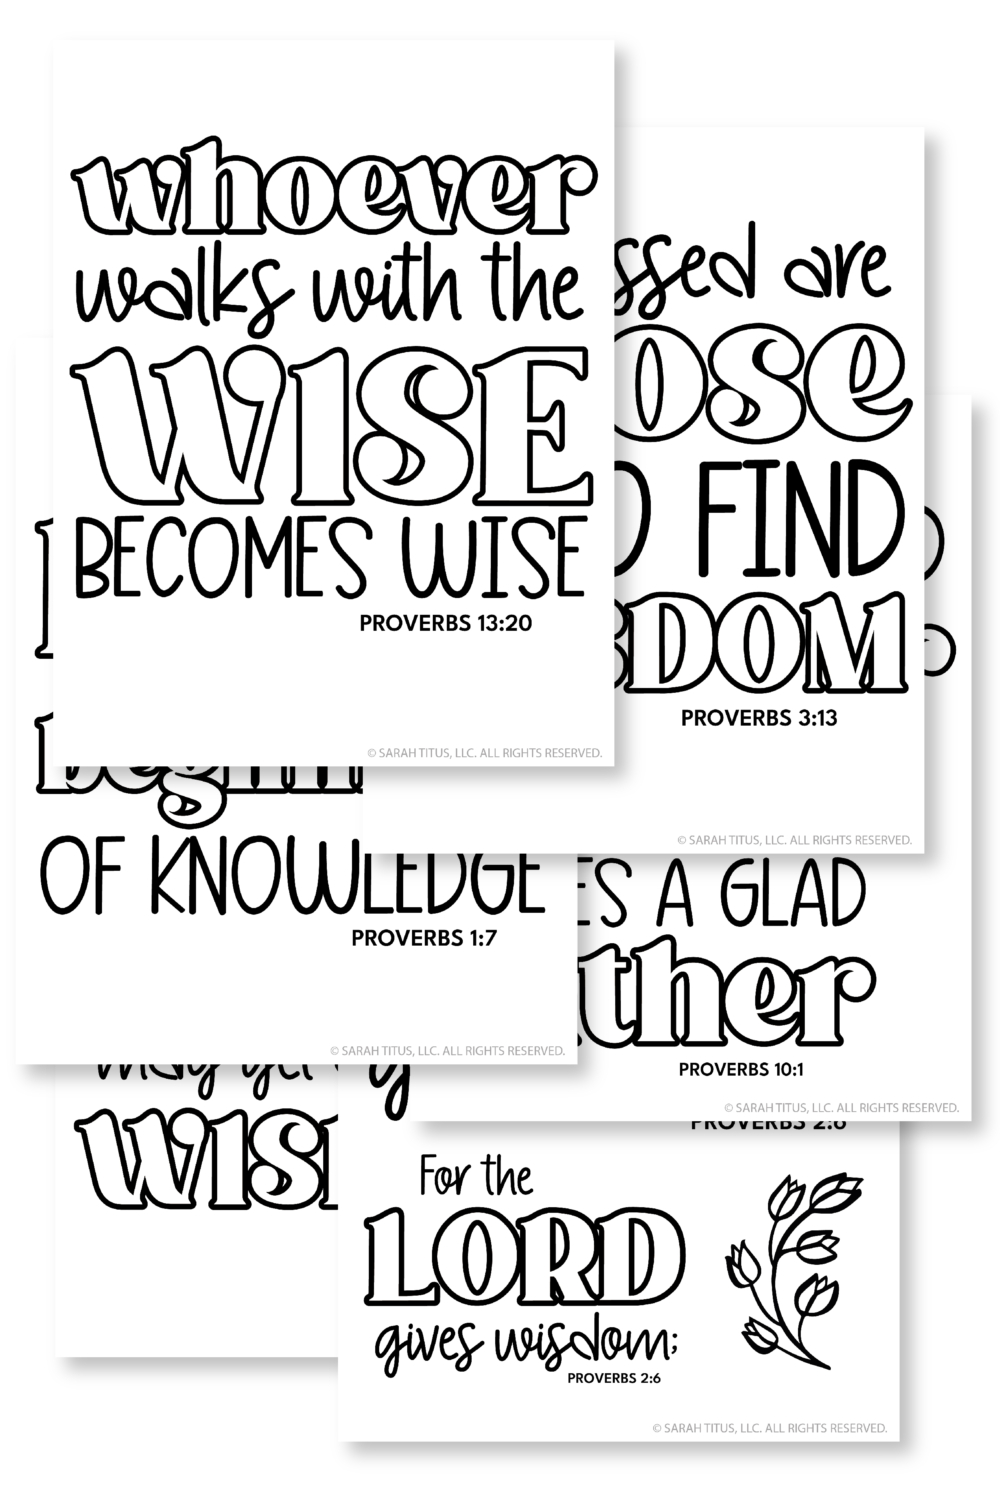 whoever
walks with the
WISE
BECOMES WISE
PROVERBS 13:20
© SARAH TITUS, LLC. ALL RIGHTS RESERVED.
ssed are
ose
O FIND
SDOM
PROVERBS 3:13
© SARAH TITUS, LLC. ALL RIGHTS RESERVED.
OF KNOWLEDGE
PROVERBS 1:7
© SARAH TITUS, LLC. ALL RIGHTS RESERVED.
ES A GLAD
ther
PROVERBS 10:1
© SARAH TITUS, LLC. ALL RIGHTS RESERVED.
WIS
PROVERBS 2:6
For the
LORD
gives wisdom;
PROVERBS 2:6
© SARAH TITUS, LLC. ALL RIGHTS RESERVED.